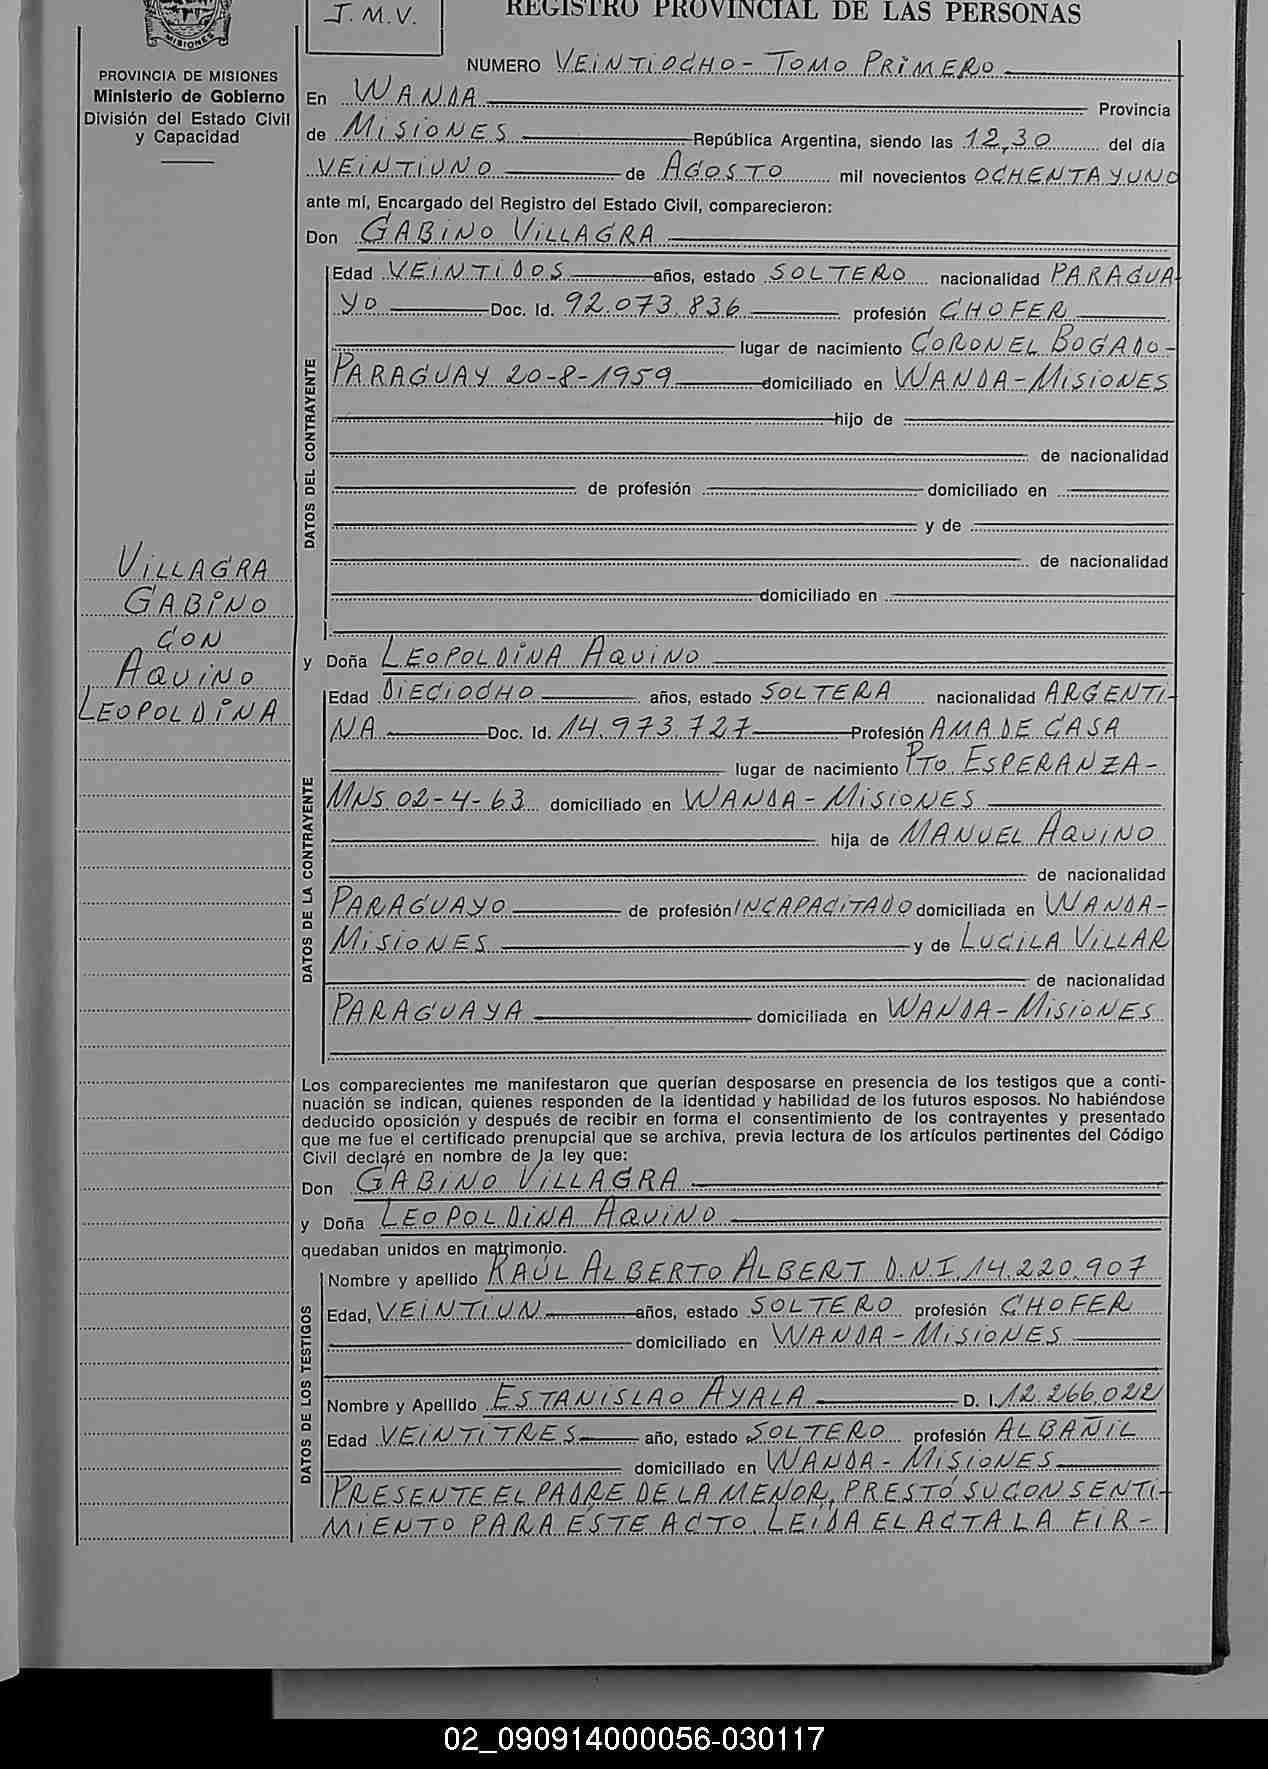 J. M. V.
REGISTRO PROVINCIAL DE LAS PERSONAS
MISIONES
PROVINCIA DE MISIONES
Ministerio de Gobierno
División del Estado Civil
y Capacidad
NUMERO VEINTIOCHO - TOMO PRIMERO
En WANDA Provincia
de MISIONES República Argentina, siendo las 12,30 del día
VEINTIUNO de AGOSTO mil novecientos OCHENTA Y UNO
ante mí, Encargado del Registro del Estado Civil, comparecieron:
Don GABINO VILLAGRA
DATOS DEL CONTRAYENTE
Edad VEINTIDOS años, estado SOLTERO nacionalidad PARAGUA-
YO Doc. Id. 92.073.836 profesión CHOFER
lugar de nacimiento CORONEL BOGADO-
PARAGUAY 20-8-1959 domiciliado en WANDA-MISIONES
hijo de
de nacionalidad
de profesión domiciliado en
y de
de nacionalidad
domiciliado en
VILLAGRA
GABINO
CON
AQUINO
LEOPOLDINA
y Doña LEOPOLDINA AQUINO
DATOS DE LA CONTRAYENTE
Edad DIECIOCHO años, estado SOLTERA nacionalidad ARGENTI-
NA Doc. Id. 14.973.727 Profesión AMA DE CASA
lugar de nacimiento PTO ESPERANZA-
MNS 02-4-63 domiciliado en WANDA-MISIONES
hija de MANUEL AQUINO
de nacionalidad
PARAGUAYO de profesión INCAPACITADO domiciliada en WANDA-
MISIONES y de LUCILA VILLAR
de nacionalidad
PARAGUAYA domiciliada en WANDA-MISIONES
Los comparecientes me manifestaron que querían desposarse en presencia de los testigos que a conti-
nuación se indican, quienes responden de la identidad y habilidad de los futuros esposos. No habiéndose
deducido oposición y después de recibir en forma el consentimiento de los contrayentes y presentado
que me fue el certificado prenupcial que se archiva, previa lectura de los artículos pertinentes del Código
Civil declaré en nombre de la ley que:
Don GABINO VILLAGRA
y Doña LEOPOLDINA AQUINO
quedaban unidos en matrimonio.
DATOS DE LOS TESTIGOS
Nombre y apellido RAÚL ALBERTO ALBERT D.N.I. 14.220.907
Edad, VEINTIUN años, estado SOLTERO profesión CHOFER
domiciliado en WANDA-MISIONES
Nombre y Apellido ESTANISLAO AYALA D. I. 12.266.022
Edad VEINTITRES año, estado SOLTERO profesión ALBAÑIL
domiciliado en WANDA-MISIONES
PRESENTE EL PADRE DE LA MENOR, PRESTÓ SU CONSENTI-
MIENTO PARA ESTE ACTO. LEIDA EL ACTA LA FIR-
02_090914000056-030117